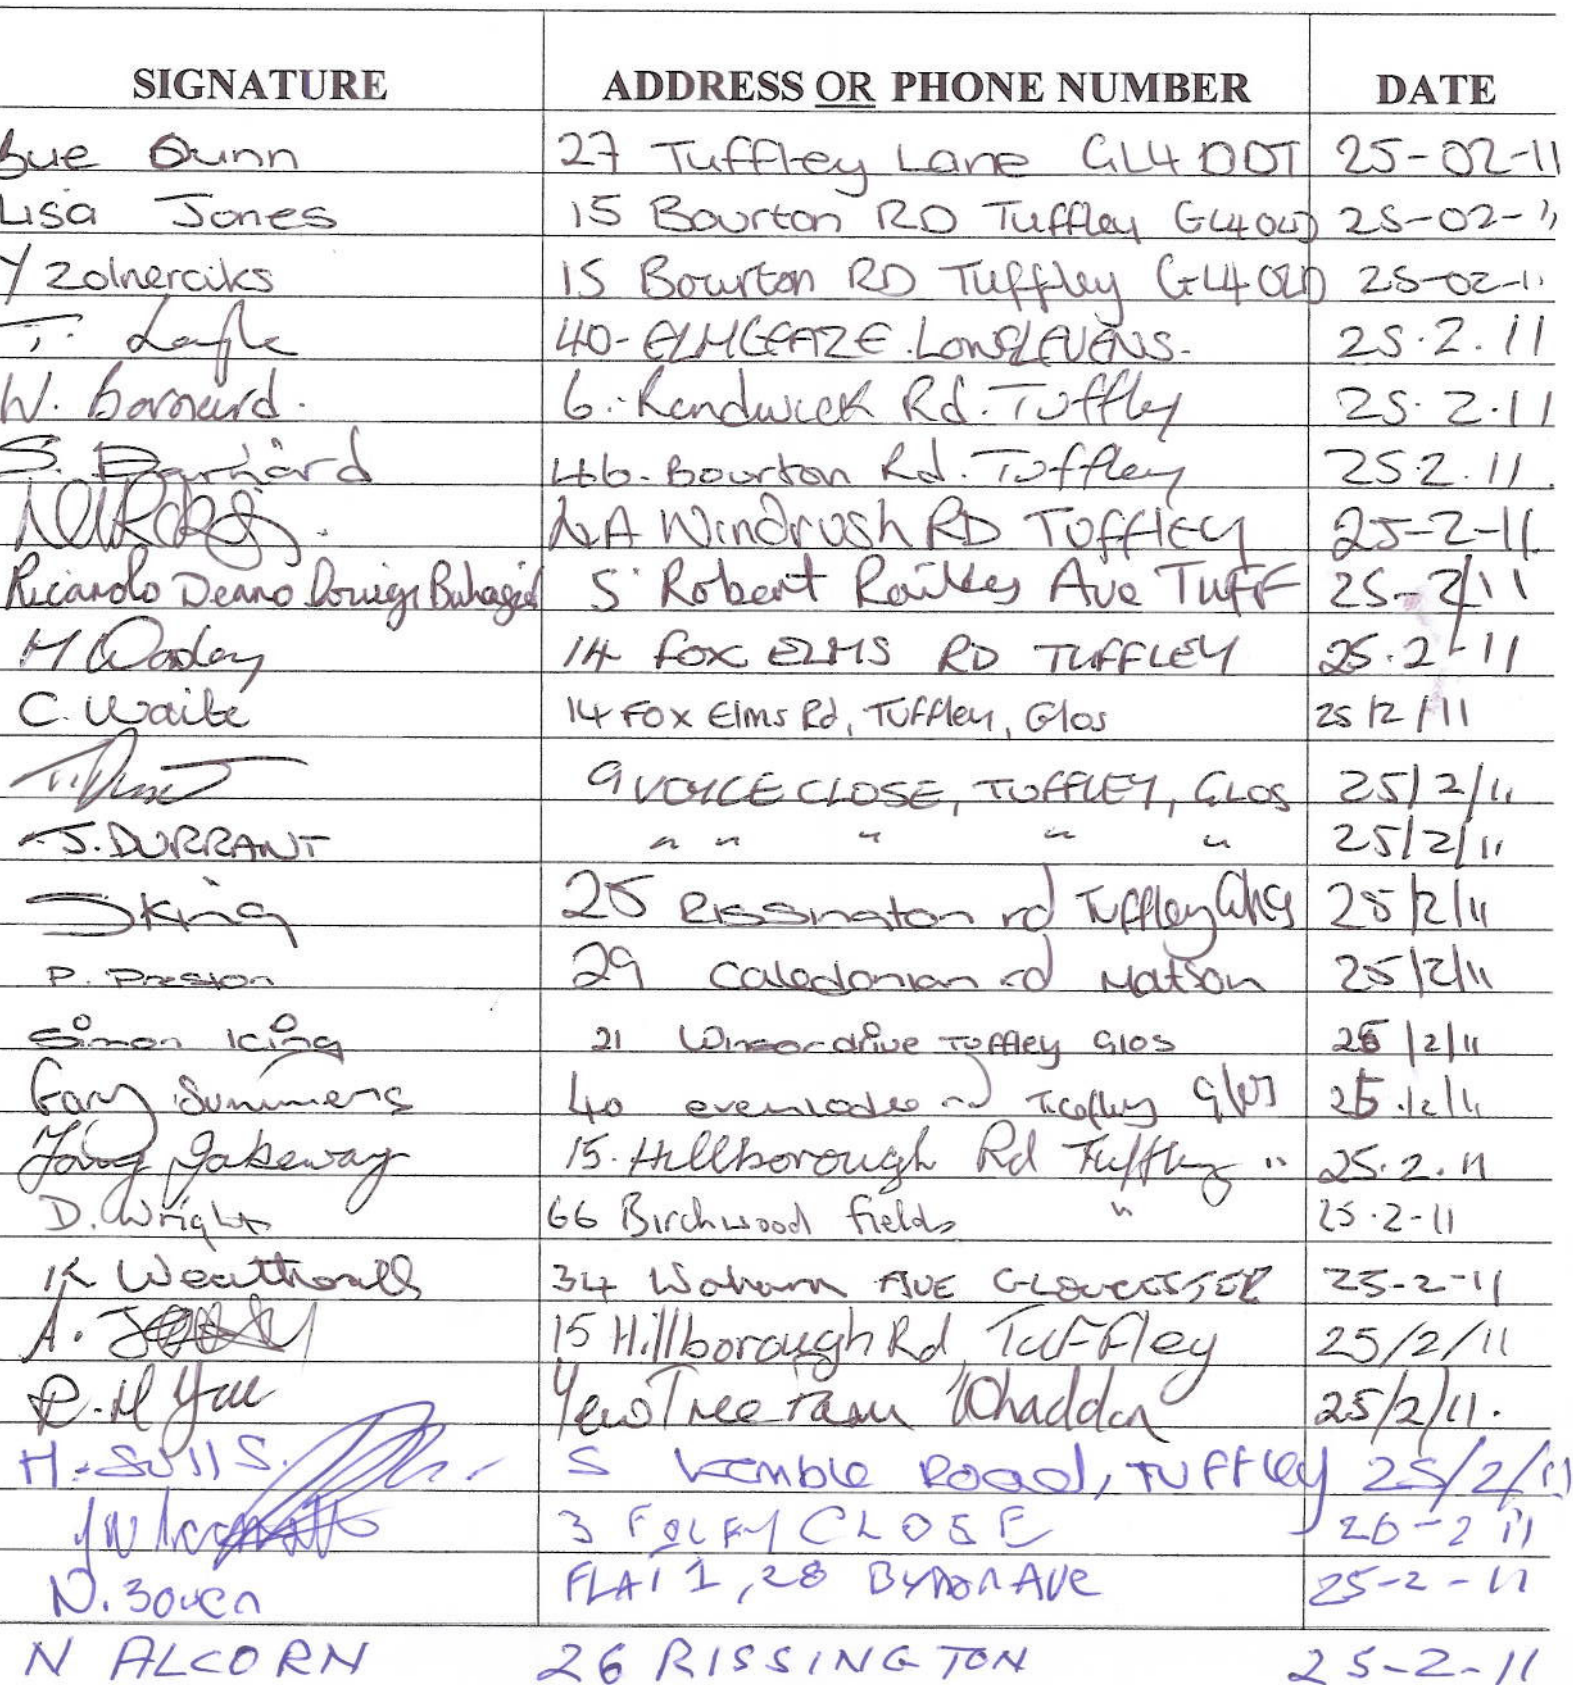 SIGNATURE ADDRESS OR PHONE NUMBER DATE
Sue Dunn 27 Tuffley Lane GL4 0DT 25-02-11
Lisa Jones 15 Bourton RD Tuffley GL4 0LD 25-02-11
Y Zolnerciks 15 Bourton RD Tuffley GL4 0LD 25-02-11
T. 40- ELMGRAZE. LONGLEVENS. 25.2.11
W. Barnard. 6. Randwick Rd. Tuffley 25.2.11
S. Barnard 46. Bourton Rd. Tuffley 25.2.11.
Windrush RD TUFFLEY 25-2-11.
Ricardo Deano 5 Robert Raikes Ave TUFF 25-2/11
M 14 FOX ELMS RD TUFFLEY 25.2.11
C. Waite 14 Fox Elms Rd, Tuffley, Glos 25/2/11
9 VOYCE CLOSE, TUFFLEY, GLOS 25/2/11
J. DURRANT " " " " " 25/2/11
J King 25 Rissington rd Tuffley Glos 25/2/11
P. Preston 29 Caledonian rd Matson 25/2/11
Simon King 21 Winsor drive Tuffley Glos 25/2/11
Gary Summers 40 evenlode rd Tuffley Glos 25/2/11
Jakeway 15. Hillborough Rd Tuffley " 25.2.11
D. Wright 66 Birchwood fields " 25.2-11
K Weatherall 34 AVE GLOUCESTER 25-2-11
A. 15 Hillborough Rd Tuffley 25/2/11
R. M Yew Tree Farm Whaddon 25/2/11.
H. 5 Kemble Road, Tuffley 25/2/11
3 FOLEY CLOSE 26-2 11
N. Boven FLAT 1, 28 Byron Ave 25-2-11
N ALCORN 26 RISSINGTON 25-2-11